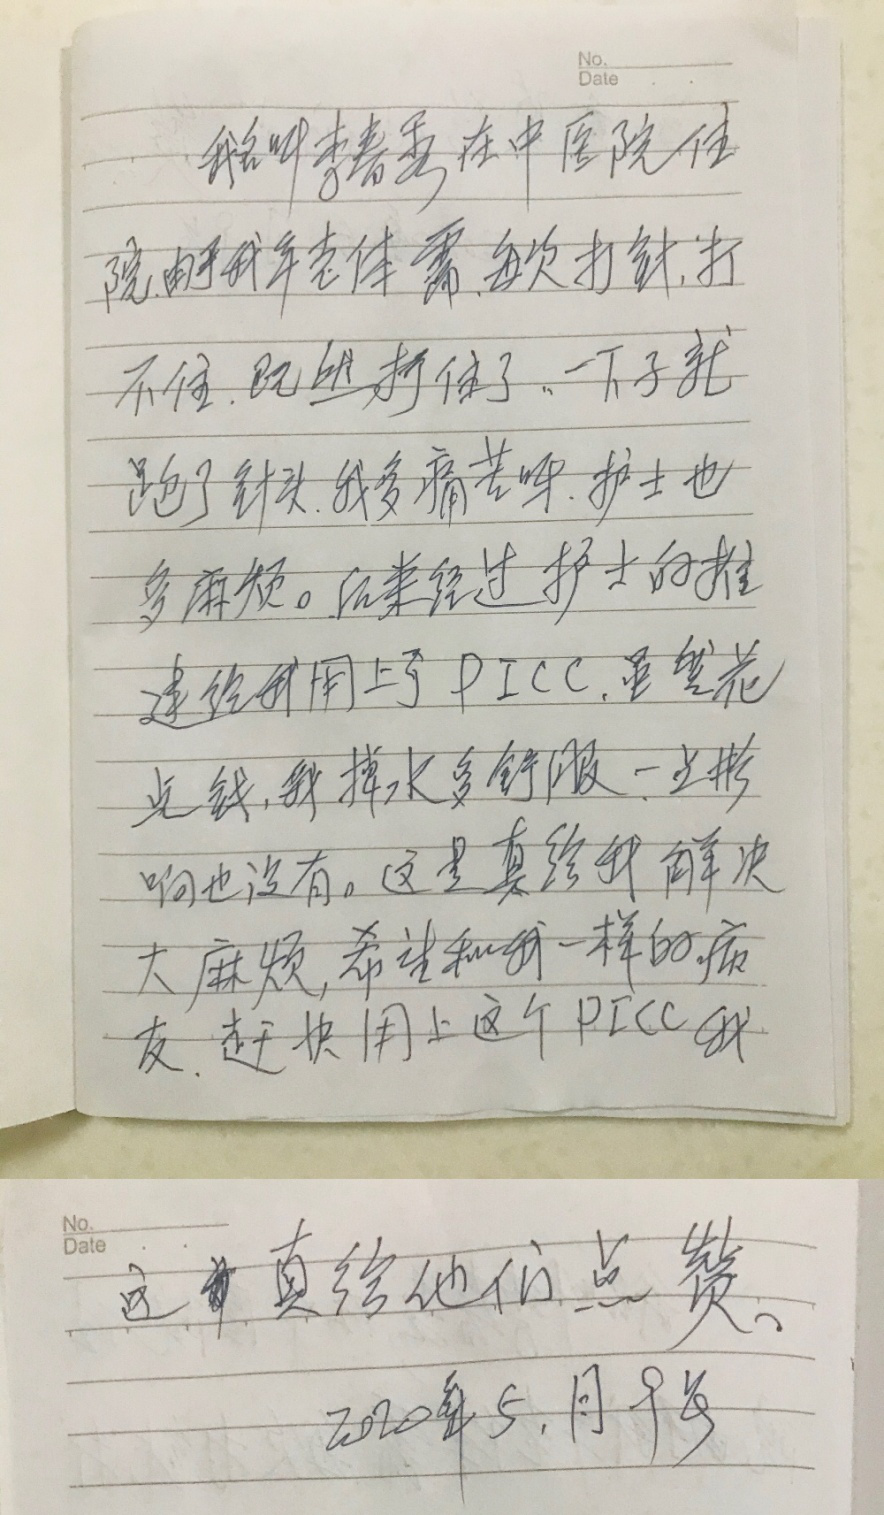 No.
Date
我名叫李春秀在中医院住
院,由于我年老体弱,每次打针,打
不住,既然打住了,一下子就
跑了针头,我多痛苦呀,护士也
多麻烦。后来经过护士的推
造给我用上了PICC,虽然花
点钱,我掉水多舒服一点影
响也没有。这是真给我解决
大麻烦,希望和我一样的病
友,赶快用上这个PICC我
No.
Date
这 真给他们点赞、
2020年5,月9号